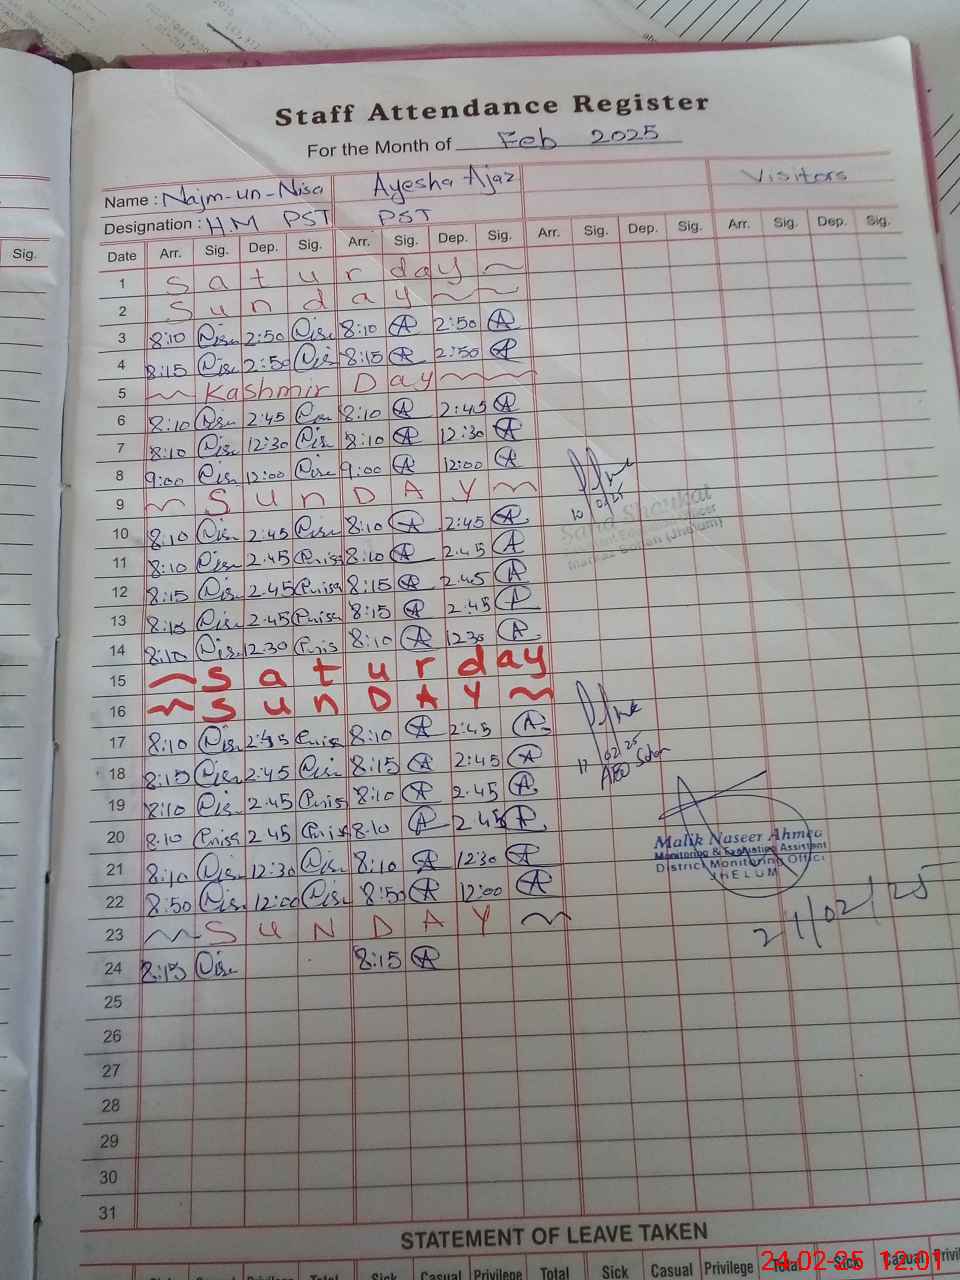 Staff Attendance Register
For the Month of Feb 2025
Name : Najm-un-Nisa Ayesha Ajaz Visitors
Designation : H.M PST PST
Sig. Date Arr. Sig. Dep. Sig. Arr. Sig. Dep. Sig. Arr. Sig. Dep. Sig. Arr. Sig. Dep. Sig.
1 Saturday
2 Sunday
3 8:10 2:50 8:10 A 2:50 A
4 8:15 2:50 8:15 A 2:50 A
5 Kashmir Day
6 8:10 2:45 8:10 A 2:45 A
7 8:10 12:30 8:10 A 12:30 A
8 9:00 12:00 9:00 A 12:00 A
9 SUnDAY
10 8:10 2:45 8:10 A 2:45 A
10 02/25
Markaz Sohan (Jhelum)
11 8:10 2.45 8:10 A 2.45 A
12 8:15 2.45 8:15 A 2.45 A
13 8:15 2.45 8:15 A 2.45 A
14 8:10 12:30 8:10 A 12:30 A
15 Saturday
16 SunDAY
17 8:10 2:45 8:10 A 2:45 A
17 02/25
18 8:15 2:45 8:15 A 2:45 A
19 8:10 2.45 8:10 A 2.45 A
20 8:10 2.45 8:10 A 2.45 A
Malik Naseer Ahmed
Monitoring & Evaluation Assistant
District Monitoring Office
JHELUM
21 8:10 12:30 8:10 A 12:30 A
22 8:50 12:00 8:50 A 12:00 A
21/02/25
23 SUNDAY
24 8:15 8:15 A
25
26
27
28
29
30
31
STATEMENT OF LEAVE TAKEN
Sick Casual Privilege Total Sick Casual Privilege Total Sick Casual
24-02-25 12:01